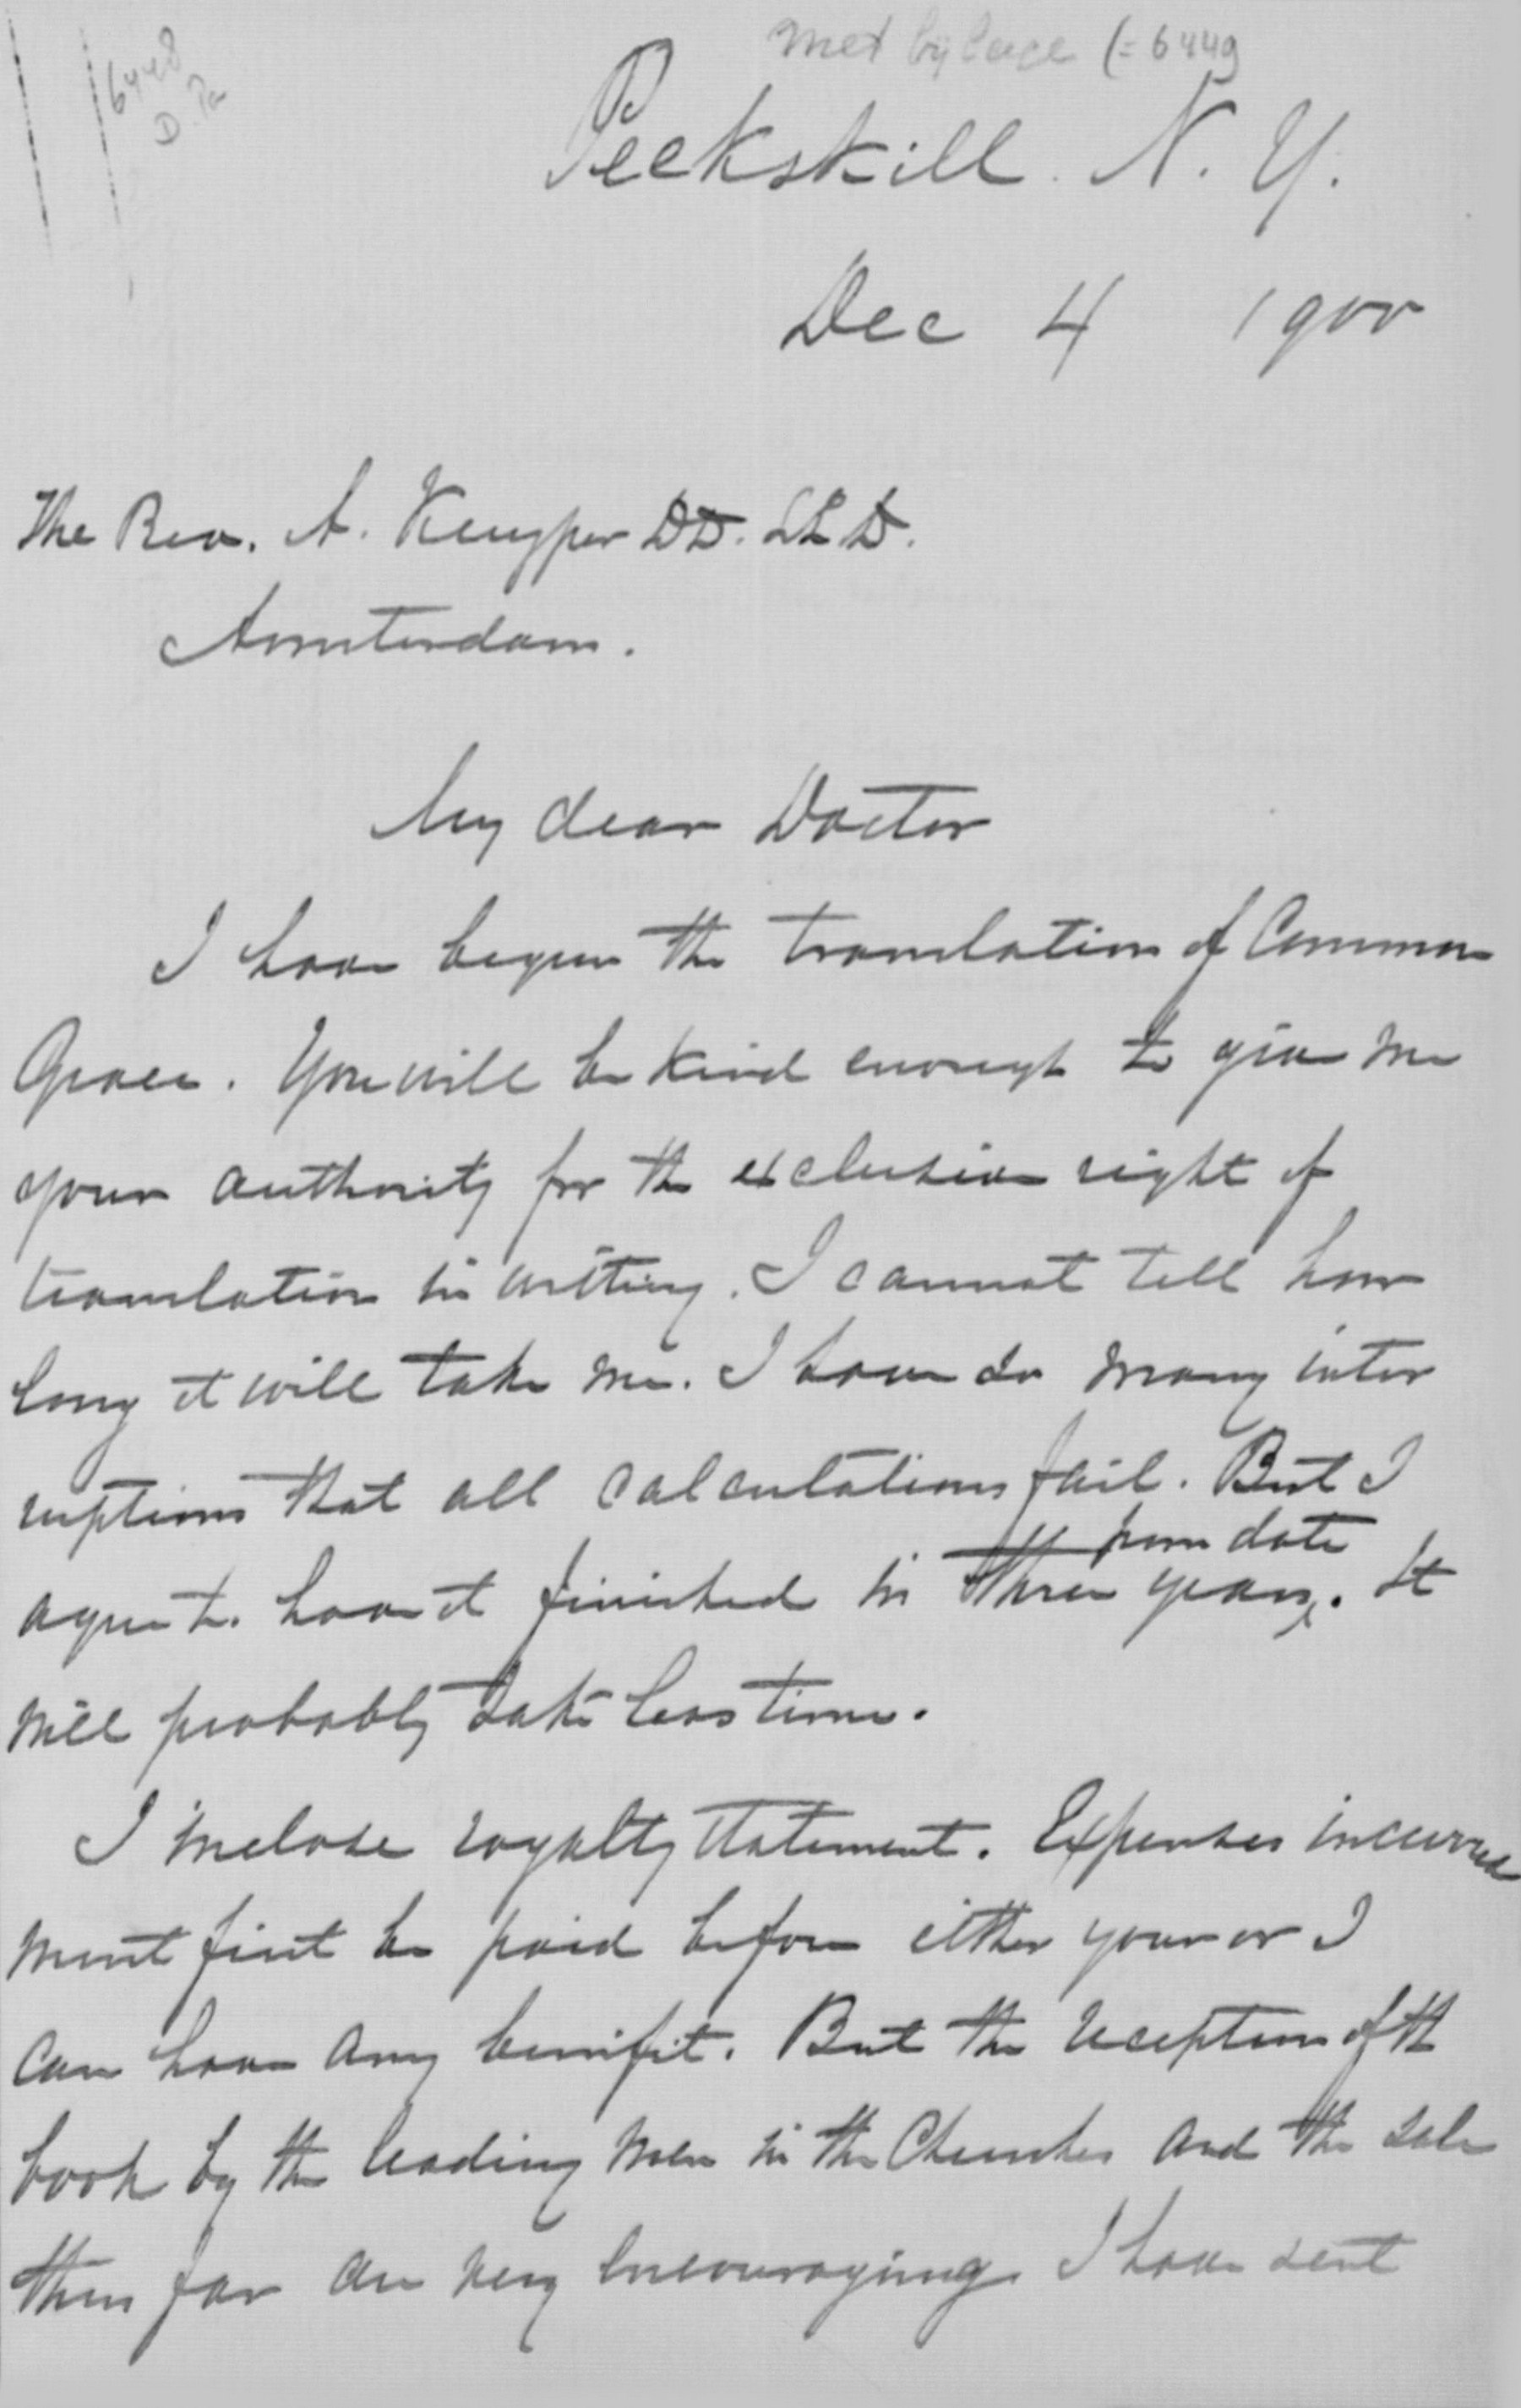 6448
D. Pa
met bijlage (= 6449
Peekskill. N. Y.
Dec 4 1900
The Rev. A. Kuyper DD. LLD.
Amsterdam.
My dear Doctor
I have begun the translation of Common
Grace. You will be kind enough to give me
your authority for the exclusive right of
translation in writing. I cannot tell how
long it will take me. I have so many inter
ruptions that all calculations fail. But I
from date
agree to have it finished in three years. It
will probably take less time.
I inclose royalty statement. Expenses incurred
must first be paid before either you or I
can have any benifit. But the reception of the
book by the leading men in the Churches and the sale
thus far are very encouraging. I have sent